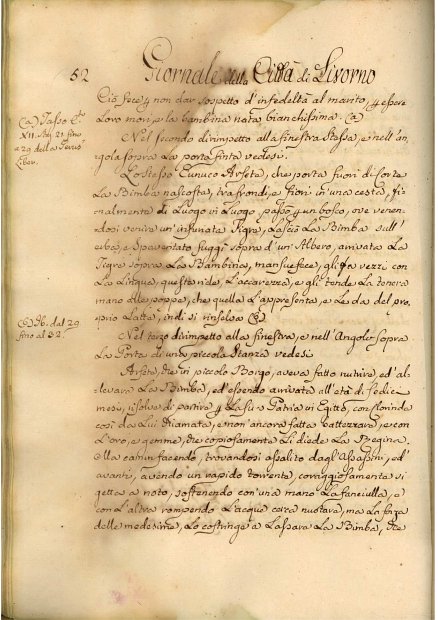 52 Giornale della Città di Livorno
Ciò fece p non dar sospetto d'infedeltà al marito, p essere
Loro mori, e la bambina nata bianchissima. (a)
(a) Tasso C.
XII. St. 21. fino
a 29. della Gerus.
Liber.
Nel secondo dirimpetto alla finestra stessa, e nell'an-
golo sopra La porta finta vedesi.
Lo stesso Eunuco Arsete, che porta fuori di Corte
La Bimba nascosta, tra frondi, e fiori in una cesta,
nalmente di Luogo in Luogo, passò p un bosco, ove venen-
dosi venire un'infuriata Tigre, Lasciò La Bimba sull'
erba, e spaventato fuggì sopra d'un Albero, arrivata La
Tigre sopra La Bambina, mansuefece, gli fa vezzi con
La Lingua, questa ride, L'accarezza, e gli tende La tenera
mano alle poppe, che quella L'appresenta, e Le dà del pro-
prio Latte, indi si rinselva (b)
(b) Ib. dal 29.
fino al 32.
Nel terzo dirimpetto alla finestra, e nell'Angolo sopra
La Porta di una piccola Stanza vedesi.
Arsete, che in piccolo Borgo, aveva fatto nutrire, ed al-
levare La Bimba, ed essendo arrivata all'età di sedici
mesi, risolve di partire p La sua Patria in Egitto, con Clorinda
così da Lui chiamata, e non ancora fatta battezzare, e con
L'oro, e gemme, che copiosamente Li diede La Regina.
Ma cammin facendo, trovandosi assalito dagl'Assassini, ed
avanti, avendo un rapido torrente, coraggiosamente si
getta a noto, sostenendo con una mano La fanciulla, e
con L'altra rompendo L'acque nuotava, ma La forza
delle medesime, Lo costringe a Lassare La Bimba, che